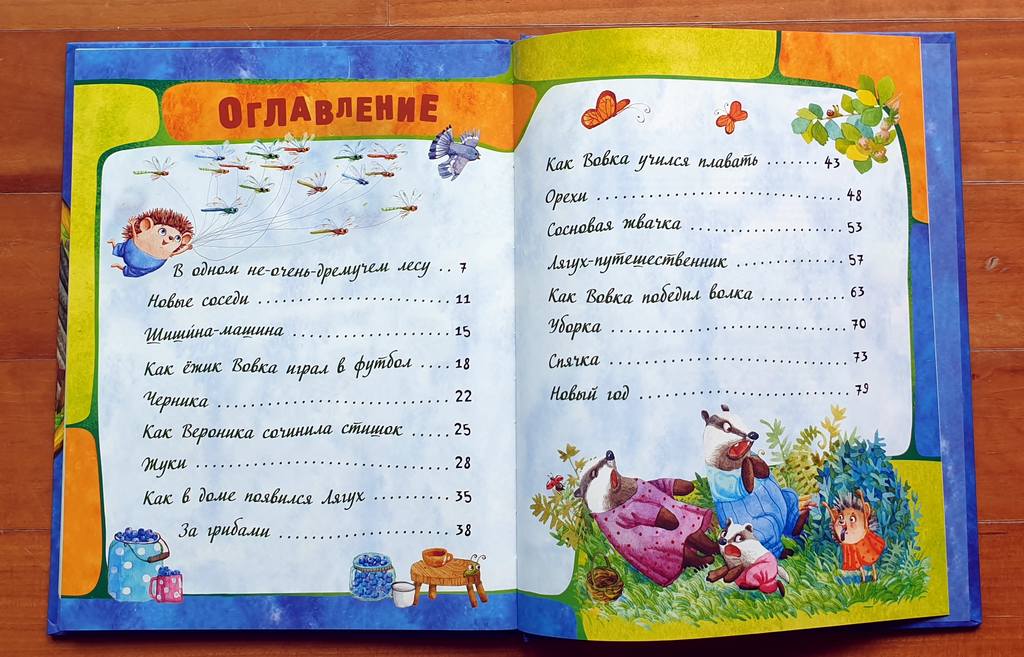 ОГЛАВЛЕНИЕ
В одном не-очень-дремучем лесу .. 7
Новые соседи ............................. 11
Шиши́на-машина ........................ 15
Как ёжик Вовка играл в футбол .... 18
Черника .................................. 22
Как Вероника сочинила стишок ..... 25
Жуки ..................................... 28
Как в доме появился Лягух ......... 35
За грибами .............................. 38
Как Вовка учился плавать ....... 43
Орехи ................................... 48
Сосновая жвачка ...................... 53
Лягух-путешественник ............... 57
Как Вовка победил волка ............ 63
Уборка .................................. 70
Спячка .................................. 73
Новый год .............................. 79